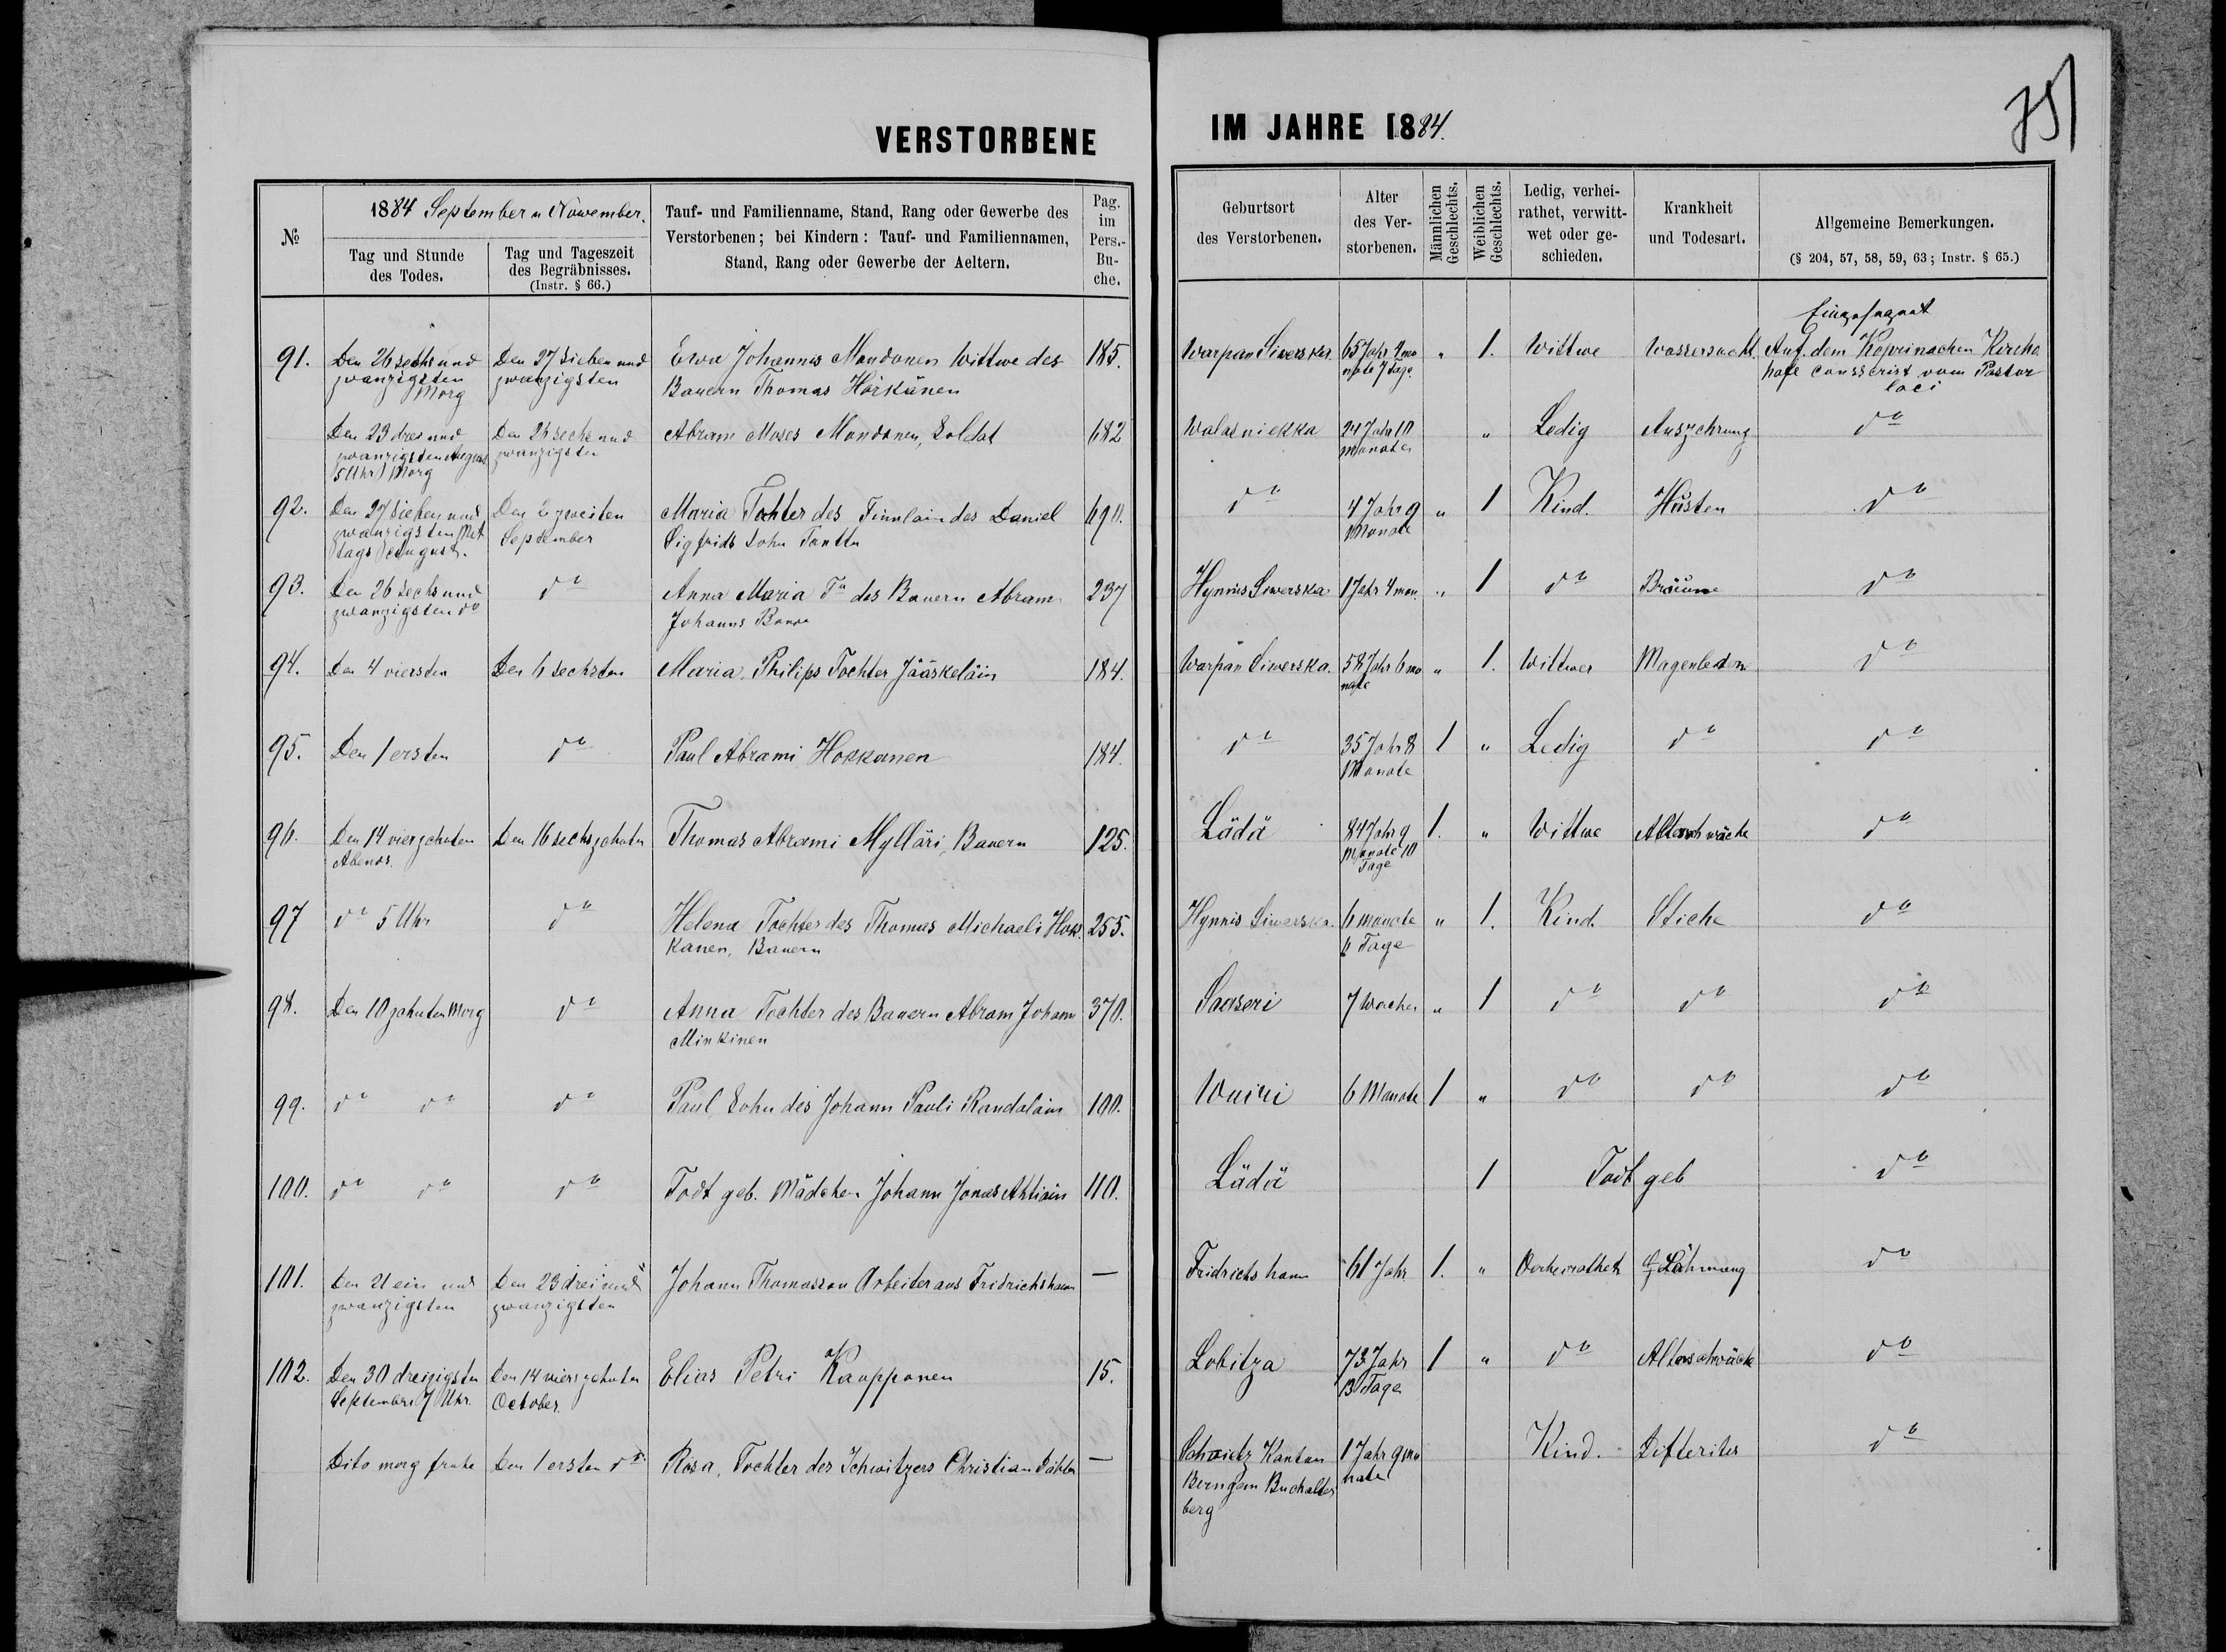 VERSTORBENE
IM JAHRE 1884.
751
№
1884 September u November.
Tag und Stunde
des Todes.
Tag und Tageszeit
des Begräbnisses.
(Instr. § 66.)
Tauf- und Familienname, Stand, Rang oder Gewerbe des
Verstorbenen; bei Kindern: Tauf- und Familiennamen,
Stand, Rang oder Gewerbe der Aeltern.
Pag.
im
Pers.-
Bu-
che.
Geburtsort
des Verstorbenen.
Alter
des Ver-
storbenen.
Männlichen
Geschlechts.
Weiblichen
Geschlechts.
Ledig, verhei-
rathet, verwitt-
wet oder ge-
schieden.
Krankheit
und Todesart.
Allgemeine Bemerkungen.
(§ 204, 57, 58, 59, 63; Instr. § 65.)
91.
Den 26 sechs und
zwanzigsten
Morg
Den 27 sieben und
zwanzigsten
Ewa Johannis Mondonen Wittwe des
Bauern Thomas Hörkänen
185.
Warpan Siwerska
65 Jahr 4 mo
nate 7 Tage.
" 1. Wittwe
Wassersucht.
Eingesegnet
Auf dem Koprinachen Kirch
hofe vom Pastor
loci
Den 23 drei und
zwanzigsten August
5 Uhr Morg
Den 26 sechs und
zwanzigsten
Abram Moses Mondonen, Soldat
682
Walasniekka
24 Jahr 10
Monate
" Ledig
Auszehrung
do
92.
Den 27 sieben und
zwanzigsten Mit
tags August.
Den 2 zweiten
September
Maria Tochter des Finnlaindes Daniel
Sigfrids Sohn Tanttu
690.
do
4 Jahr 9
Monate
" 1 Kind.
Husten
do
93.
Den 26 sechs und
zwanzigsten do
do
Anna Maria Tr des Bauern Abram
Johanns
237
Hynnis Siwerska
1 Jahr 4 mon.
" 1 do
Bräune
do
94.
Den 4 viersten
Den 6 sechsten
Maria, Philips Tochter Jääskeläin
184.
Warpan Siwerska.
58 Jahr 6 mo
nate
" 1. Wittwer
Magenleden
do
95.
Den 1 ersten
do
Paul Abrami Hokkanen
184.
do
35 Jahr 8
Monate
1 " Ledig
do
do
96.
Den 14 vierzehnten
Abends.
Den 16 sechszehnten
Thomas Abrami Mylläri, Bauern
125.
Lädä
84 Jahr 9
Monate 10
Tage
1. " Wittwe
Alterschwäche
do
97
do 5 Uhr
do
Helena Tochter des Thomas Michaeli Hok
kanen, Bauern
255.
Hynnis Siwerska.
6 Monate
6 Tage
" 1. Kind.
Stiche
do
98.
Den 10 zehnten Morg
do
Anna Tochter des Bauern Abram Johann
Minkinen
370.
Saaseri
7 Wochen
" 1 do
do
do
99.
do do
do
Paul, Sohn des Johann Pauli Randalain
100.
Wuiri
6 Monate
1 " do
do
do
100.
do do
do
Todt geb. Mädchen Johann Jonas Ahtiain
110.
Lädä
1
Todt geb
do
101.
Den 21 ein und
zwanzigsten
Den 23 drei und
zwanzigsten
Johann Thomasson Arbeiter aus Fridrichsham
—
Fridrichsham
61 Jahr
1. " Verheirathet
Lähmung
do
102.
Den 30 dreizigsten
September 7 Uhr.
Den 14 vierzehnten
October.
Elias Petri Kaupponen
15.
Lobitza
73 Jahr
13 Tage
1 " do
Alterschwäche
do
Dito morg fruhe
Den 1 ersten do
Rosa, Tochter des Schwitzers Christian
—
Schweitz Kanton
Bern gem Buchalter
berg
1 Jahr 9 mo
nate
Kind.
Difterites
do